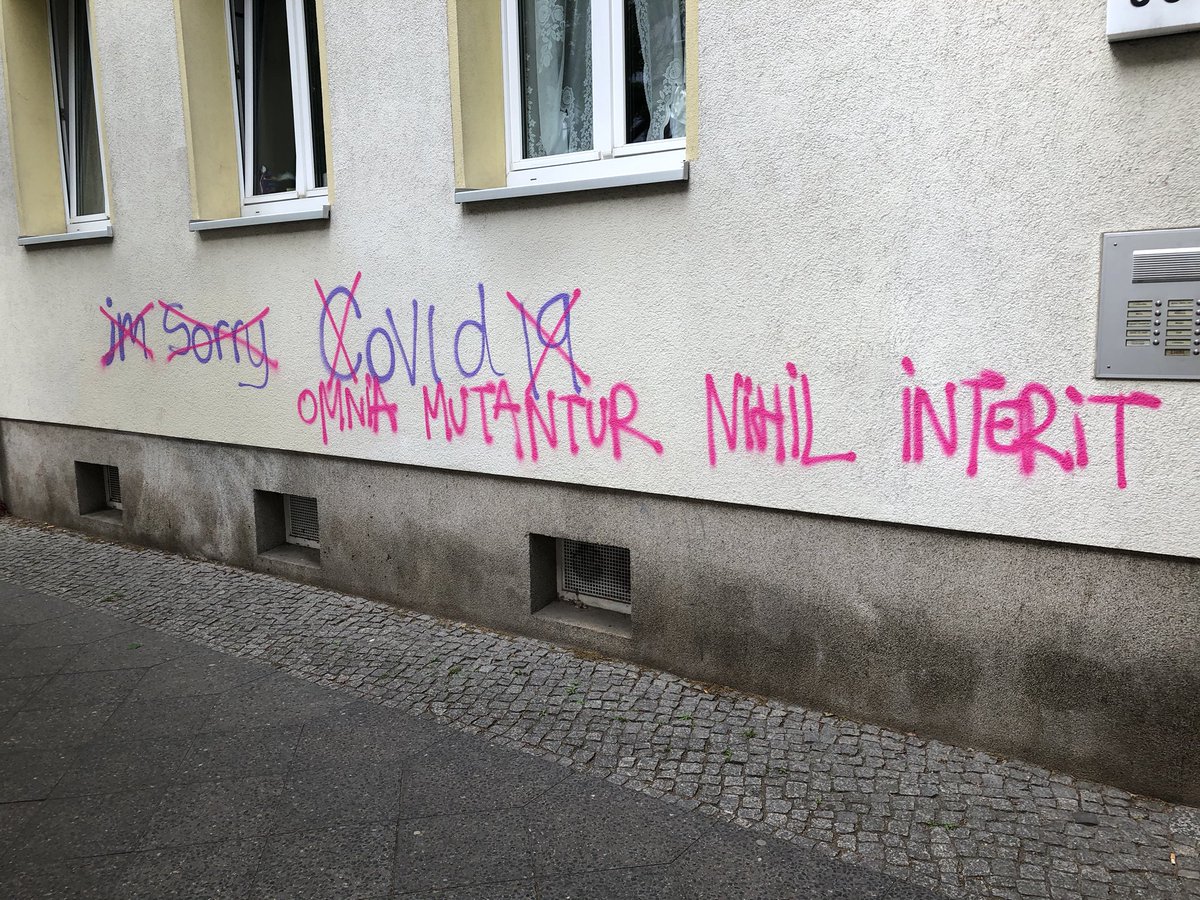 im Sorry Covid 19
OMNIA MUTANTUR NIHIL INTERIT